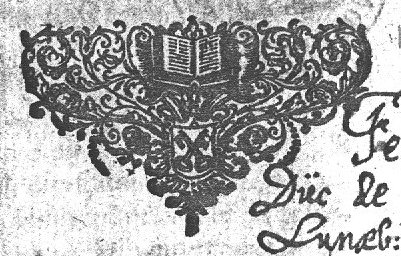 Fe
Düc de
Lunæb: